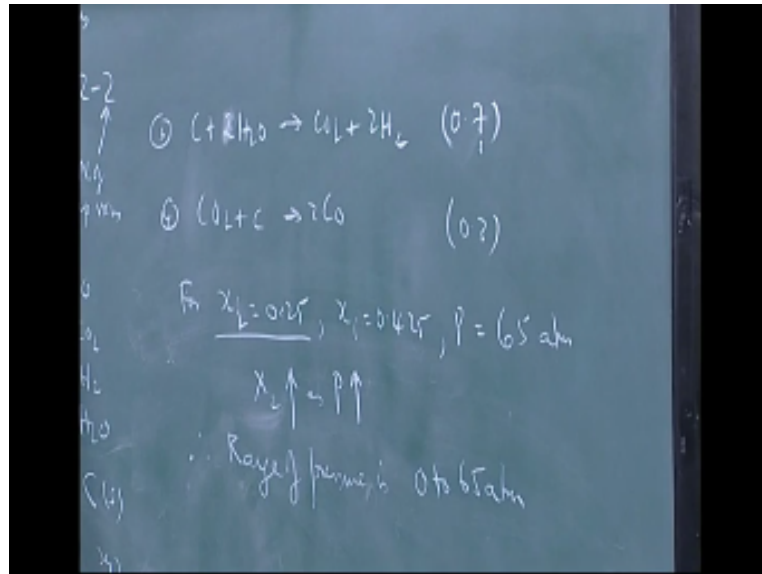 2-2
① C + 2H₂O → CO₂ + 2H₂ (0.7)
② CO₂ + C → 2CO (0.2)
For x₂ = 0.25, x₁ = 0.425, P = 65 atm
x₂ ↑ as P ↑
∴ Range of pressure is 0 to 65 atm
H₂
H₂O